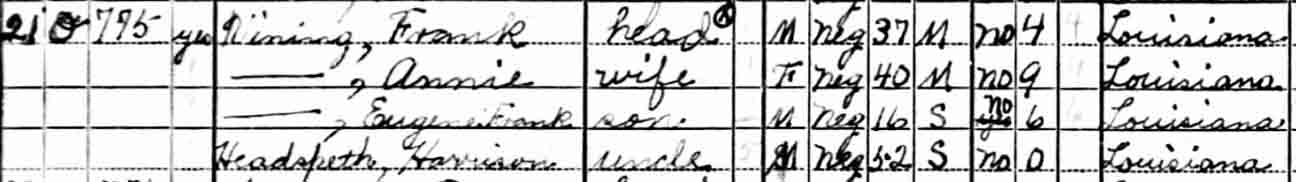 21 O 775 yes Nining, Frank head Ⓧ M Neg 37 M no 4 Louisiana
—, Annie wife F Neg 40 M no 9 Louisiana
—, Eugene Frank son M Neg 16 S no 6 Louisiana
Headspeth, Harrison uncle M Neg 52 S no 0 Louisiana